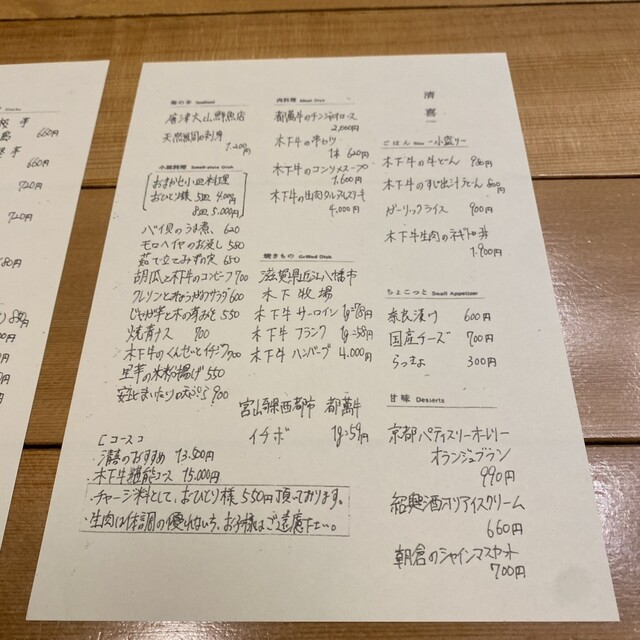 清喜
海の幸 Seafood
唐津大山鮮魚店
天然真鯛の刺身
1,200円
小皿料理 Small-plate Dish
おまかせ小皿料理
おひとり様 5皿 4,000円
8皿 5,000円
バイ貝のうま煮、 620
モロヘイヤのお浸し 580
茹で立てみずの実 650
胡瓜と木下牛のコンビーフ 700
クレソンときゅうりのサラダ 600
じゃが芋と木の芽みそ 550
焼青ナス 800
木下牛のくんせいとイチジク 700
里芋の米粉揚げ 550
肉料理 Meat Dish
都萬牛のチンジャオロース
2,000円
木下牛の串カツ
1本 620円
木下牛のコンソメスープ
1,600円
木下牛の生肉タルタルステーキ
4,000円
焼きもの Grilled Dish
滋賀県近江八幡市
木下牧場
木下牛 サーロイン 1g=78円
木下牛 フランク 1g=58円
木下牛 ハンバーグ 4,000円
宮崎県西都市 都萬牛
イチボ 1g=59円
[コース]
・清喜のおすすめ 13,500円
・木下牛堪能コース 15,000円
・チャージ料として、おひとり様550円頂っております。
・生肉は体調の優れない方、お子様はご遠慮下さい。
ごはん Rice ー小盛りー
木下牛の牛どん 980円
木下牛のすじ出汁うどん 800円
ガーリックライス 900円
木下牛生肉のネギトロ丼
1,900円
ちょこっと Small Appetizer
奈良漬け 600円
国産チーズ 700円
らっきょ 300円
甘味 Desserts
京都パティスリーオーレリー
オランジュブラン
990円
紹興酒入りアイスクリーム
660円
朝倉のシャインマスカット
700円
660円
660円
720円
720円